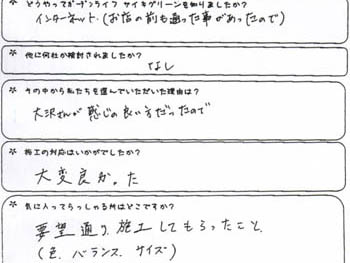 * どうやってガーデンライフ サイキグリーンを知りましたか?
インターネット.(お店の前も通った事があったので)
* 他に何社か検討されましたか?
なし
* その中から私たちを選んでいただいた理由は?
大沢さんが感じの良い方だったので
* 施工の対応はいかがでしたか?
大変良かった
* 気に入ってらっしゃる所はどこですか?
要望通り施工してもらったこと、
(色、バランス、サイズ)